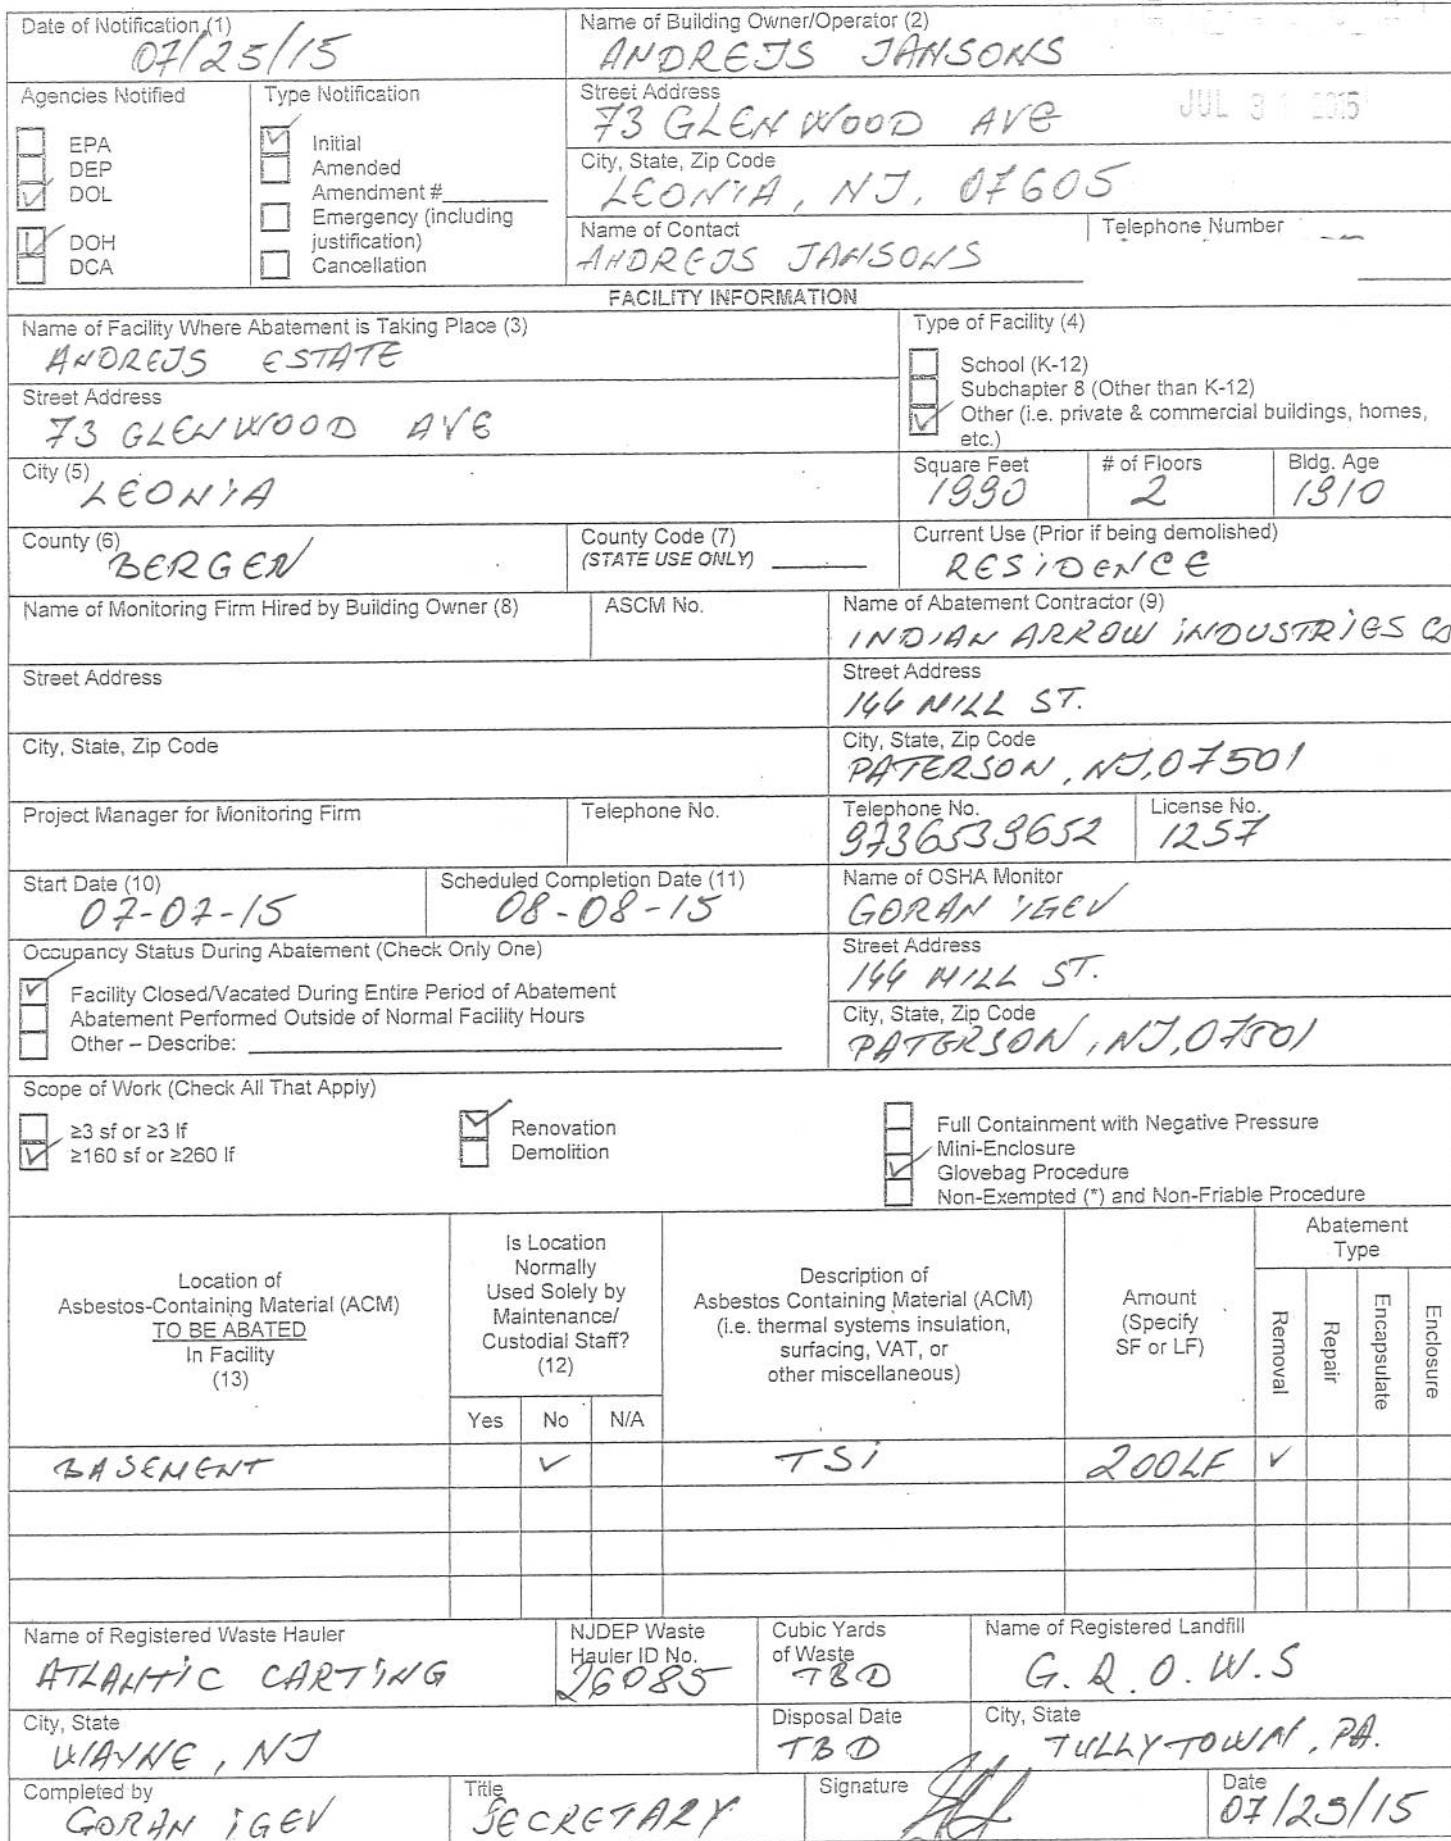 Date of Notification (1)
07/25/15
Name of Building Owner/Operator (2)
ANDREJS JANSONS
Agencies Notified
EPA
DEP
DOL
DOH
DCA
Type Notification
Initial
Amended
Amendment #
Emergency (including
justification)
Cancellation
Street Address
73 GLENWOOD AVE
JUL 3 2015
City, State, Zip Code
LEONIA, NJ, 07605
Name of Contact
ANDREJS JANSONS
Telephone Number
FACILITY INFORMATION
Name of Facility Where Abatement is Taking Place (3)
ANDREJS ESTATE
Type of Facility (4)
School (K-12)
Subchapter 8 (Other than K-12)
Other (i.e. private & commercial buildings, homes,
etc.)
Street Address
73 GLENWOOD AVE
City (5)
LEONIA
Square Feet
1990
# of Floors
2
Bldg. Age
1910
County (6)
BERGEN
County Code (7)
(STATE USE ONLY)
Current Use (Prior if being demolished)
RESIDENCE
Name of Monitoring Firm Hired by Building Owner (8)
ASCM No.
Name of Abatement Contractor (9)
INDIAN ARROW INDUSTRIES CO
Street Address
Street Address
144 MILL ST.
City, State, Zip Code
City, State, Zip Code
PATERSON, NJ, 07501
Project Manager for Monitoring Firm
Telephone No.
Telephone No.
9736539652
License No.
1257
Start Date (10)
07-07-15
Scheduled Completion Date (11)
08-08-15
Name of OSHA Monitor
GORAN IGEV
Occupancy Status During Abatement (Check Only One)
Facility Closed/Vacated During Entire Period of Abatement
Abatement Performed Outside of Normal Facility Hours
Other – Describe:
Street Address
144 MILL ST.
City, State, Zip Code
PATERSON, NJ, 07501
Scope of Work (Check All That Apply)
≥3 sf or ≥3 lf
≥160 sf or ≥260 lf
Renovation
Demolition
Full Containment with Negative Pressure
Mini-Enclosure
Glovebag Procedure
Non-Exempted (*) and Non-Friable Procedure
Location of
Asbestos-Containing Material (ACM)
TO BE ABATED
In Facility
(13)
Is Location
Normally
Used Solely by
Maintenance/
Custodial Staff?
(12)
Yes No N/A
Description of
Asbestos Containing Material (ACM)
(i.e. thermal systems insulation,
surfacing, VAT, or
other miscellaneous)
Amount
(Specify
SF or LF)
Abatement
Type
Removal
Repair
Encapsulate
Enclosure
BASEMENT ✓ TSI 200LF ✓
Name of Registered Waste Hauler
ATLANTIC CARTING
NJDEP Waste
Hauler ID No.
26085
Cubic Yards
of Waste
TBD
Name of Registered Landfill
G.R.O.W.S
City, State
WAYNE, NJ
Disposal Date
TBD
City, State
TULLYTOWN, PA.
Completed by
GORAN IGEV
Title
SECRETARY
Signature
Date
07/25/15